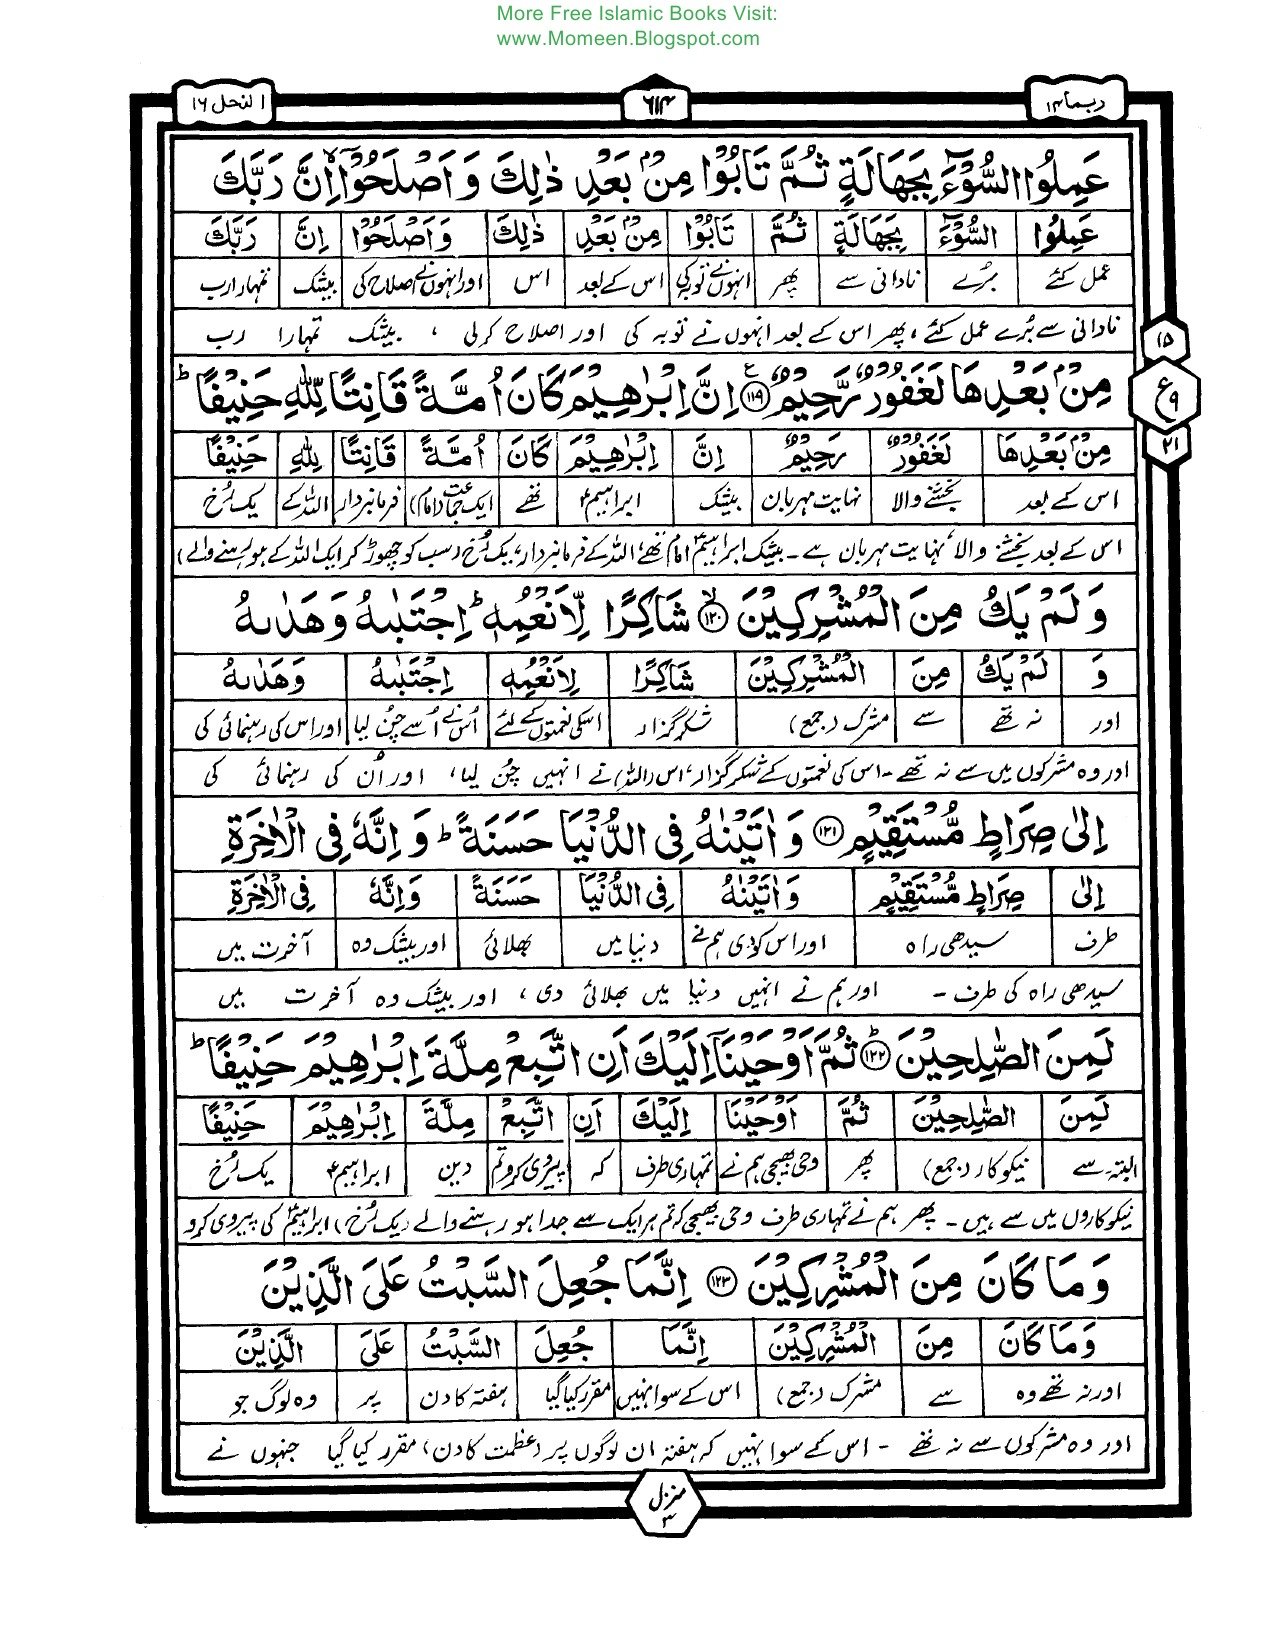 More Free Islamic Books Visit:
www.Momeen.Blogspot.com
ربما ۱۴ ۶۱۴ النحل ۱۶
عَمِلُوا السُّوْٓءَ بِجَهَالَةٍ ثُمَّ تَابُوْا مِنْۢ بَعْدِ ذٰلِكَ وَاَصْلَحُوْٓا ۙ اِنَّ رَبَّكَ
عَمِلُوا السُّوْٓءَ بِجَهَالَةٍ ثُمَّ تَابُوْا مِنْۢ بَعْدِ ذٰلِكَ وَاَصْلَحُوْٓا اِنَّ رَبَّكَ
عمل کئے بُرے نادانی سے پھر انہوں نے توبہ کی اس کے بعد اس اور انہوں نے اصلاح کی بیشک تمہارا رب
نادانی سے بُرے عمل کئے، پھر اس کے بعد انہوں نے توبہ کی اور اصلاح کرلی، بیشک تمہارا رب
۱۵
مِنْۢ بَعْدِهَا لَغَفُوْرٌ رَّحِيْمٌ ۝۱۱۹ ع اِنَّ اِبْرٰهِيْمَ كَانَ اُمَّةً قَانِتًا لِّلّٰهِ حَنِيْفًا ؕ
ع ۹
مِنْۢ بَعْدِهَا لَغَفُوْرٌ رَّحِيْمٌ اِنَّ اِبْرٰهِيْمَ كَانَ اُمَّةً قَانِتًا لِلّٰهِ حَنِيْفًا
۲۱
اس کے بعد بخشنے والا نہایت مہربان بیشک ابراہیمؑ تھے ایک جماعت (امام) فرمانبردار اللہ کے یک رُخ
اس کے بعد بخشنے والا نہایت مہربان ہے۔ بیشک ابراہیمؑ امام تھے، اللہ کے فرمانبردار، یک رُخ (سب کو چھوڑ کر ایک اللہ کے ہو رہنے والے)
وَ لَمْ يَكُ مِنَ الْمُشْرِكِيْنَ ۝۱۲۰ ۙ شَاكِرًا لِّاَنْعُمِهٖ ؕ اِجْتَبٰىهُ وَهَدٰىهُ
وَ لَمْ يَكُ مِنَ الْمُشْرِكِيْنَ شَاكِرًا لِاَنْعُمِهٖ اِجْتَبٰىهُ وَهَدٰىهُ
اور نہ تھے سے مشرک (جمع) شکر گزار اسکی نعمتوں کے لئے اُس نے اُسے چُن لیا اور اس کی رہنمائی کی
اور وہ مشرکوں میں سے نہ تھے۔ اس کی نعمتوں کے شکر گزار، اس (اللہ) نے انہیں چُن لیا، اور اُن کی رہنمائی کی
اِلٰى صِرَاطٍ مُّسْتَقِيْمٍ ۝۱۲۱ وَاٰتَيْنٰهُ فِى الدُّنْيَا حَسَنَةً ؕ وَاِنَّهٗ فِى الْاٰخِرَةِ
اِلٰى صِرَاطٍ مُّسْتَقِيْمٍ وَاٰتَيْنٰهُ فِى الدُّنْيَا حَسَنَةً وَاِنَّهٗ فِى الْاٰخِرَةِ
طرف سیدھی راہ اور اس کو دی ہم نے دنیا میں بھلائی اور بیشک وہ آخرت میں
سیدھی راہ کی طرف۔ اور ہم نے انہیں دنیا میں بھلائی دی، اور بیشک وہ آخرت میں
لَمِنَ الصّٰلِحِيْنَ ۝۱۲۲ ؕ ثُمَّ اَوْحَيْنَآ اِلَيْكَ اَنِ اتَّبِعْ مِلَّةَ اِبْرٰهِيْمَ حَنِيْفًا ؕ
لَمِنَ الصّٰلِحِيْنَ ثُمَّ اَوْحَيْنَا اِلَيْكَ اَنِ اتَّبِعْ مِلَّةَ اِبْرٰهِيْمَ حَنِيْفًا
البتہ سے نیکوکار (جمع) پھر وحی بھیجی ہم نے تمہاری طرف کہ پیروی کرو تم دین ابراہیمؑ یک رُخ
نیکوکاروں میں سے ہیں۔ پھر ہم نے تمہاری طرف وحی بھیجی کہ تم ہر ایک سے جدا ہو رہنے والے (یک رُخ) ابراہیمؑ کی پیروی کرو
وَمَا كَانَ مِنَ الْمُشْرِكِيْنَ ۝۱۲۳ اِنَّمَا جُعِلَ السَّبْتُ عَلَى الَّذِيْنَ
وَمَا كَانَ مِنَ الْمُشْرِكِيْنَ اِنَّمَا جُعِلَ السَّبْتُ عَلَى الَّذِيْنَ
اور نہ تھے وہ سے مشرک (جمع) اس کے سوا نہیں مقرر کیا گیا ہفتہ کا دن پر وہ لوگ جو
اور وہ مشرکوں سے نہ تھے۔ اس کے سوا نہیں کہ ہفتہ ان لوگوں پر (عظمت کا دن) مقرر کیا گیا جنہوں نے
منزل
۳